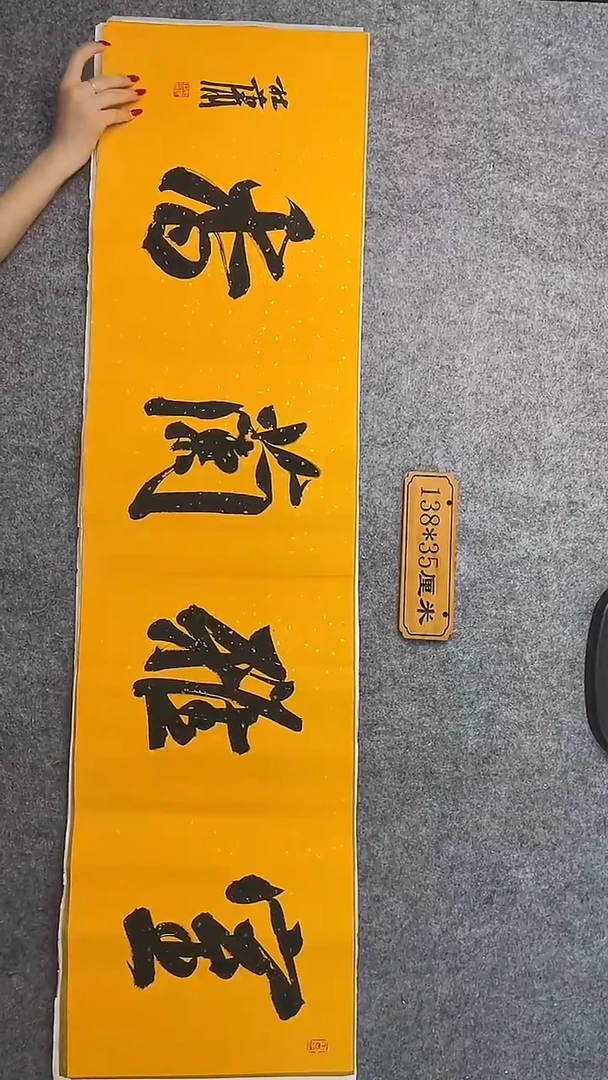 室雅蘭香
138*35厘米